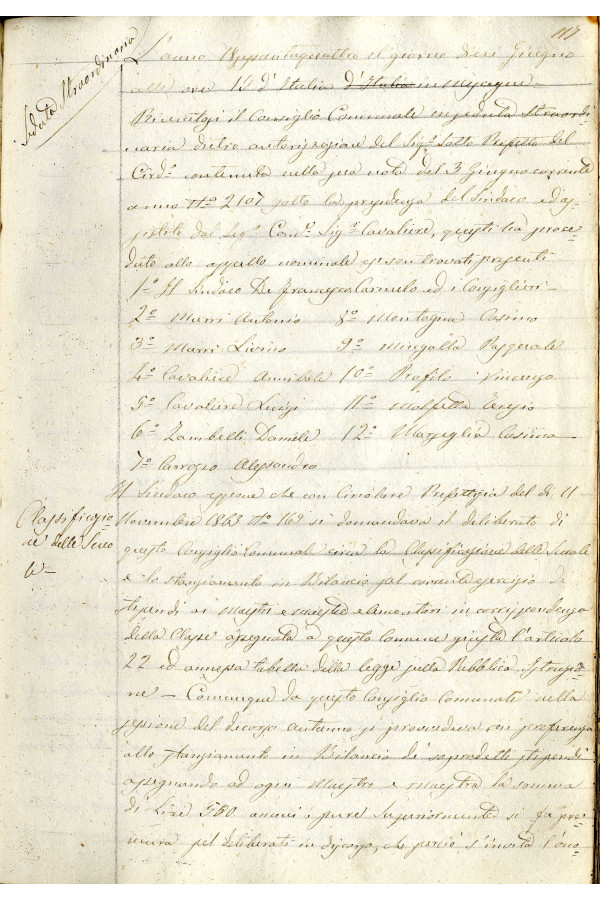 117
Seduta Straordinaria
L'anno 18sessantaquattro il giorno dieci Giugno
alle ore 19 d'Italia d'Italia in Mesagne
Riunitosi il Consiglio Comunale in seduta Straordi
naria dietro autorizzazione del Sigr Sotto Prefetto del
Circo contenuta nella sua nota del 3 Giugno corrente
anno No 2107 sotto la presidenza del Sindaco ed as-
sistito dal Segr Come Sigr Cavaliere, questi ha proce-
duto allo appello nominale e si son trovati presenti
1o Il Sindaco De Francesco Carmelo ed i Consiglieri
2o Murri Antonio 8o Montagna Cosimo
3o Murri Livino 9o Mingolla Pasquale
4o Cavaliere Annibale 10o Profilo Vincenzo
5o Cavaliere Luigi 11o Molfetta Eresio
6o Zambelli Daniele 12o Marseglia Cosimo
7o Carrozzo Alessandro
Classificazio-
ne delle Scuo
le
Il Sindaco espone che con Circolare Prefettizia del dì 11
Novembre 1863 No 169 si domandava il deliberato di
questo Consiglio Comunale circa la Classificazione delle Scuole
e lo stanziamento in Bilancio pel corrente esercizio di
stipendi ai Maestri e Maestre elementari in corrispondenza
della Classe assegnata a questo Comune giusta l'articolo
22 ed annessa tabella della legge sulla Pubblica Istruzio-
ne - Comunque da questo Consiglio Comunale nella
sessione del decorso autunno si provvedeva con preferenza
allo stanziamento in Bilancio di sopradetti stipendi
assegnando ad ogni Maestro e Maestra la somma
di Lire 550 annui pure Superiormente si fa pre-
mura pel deliberati in discorso, che perciò s'invita l'ono-